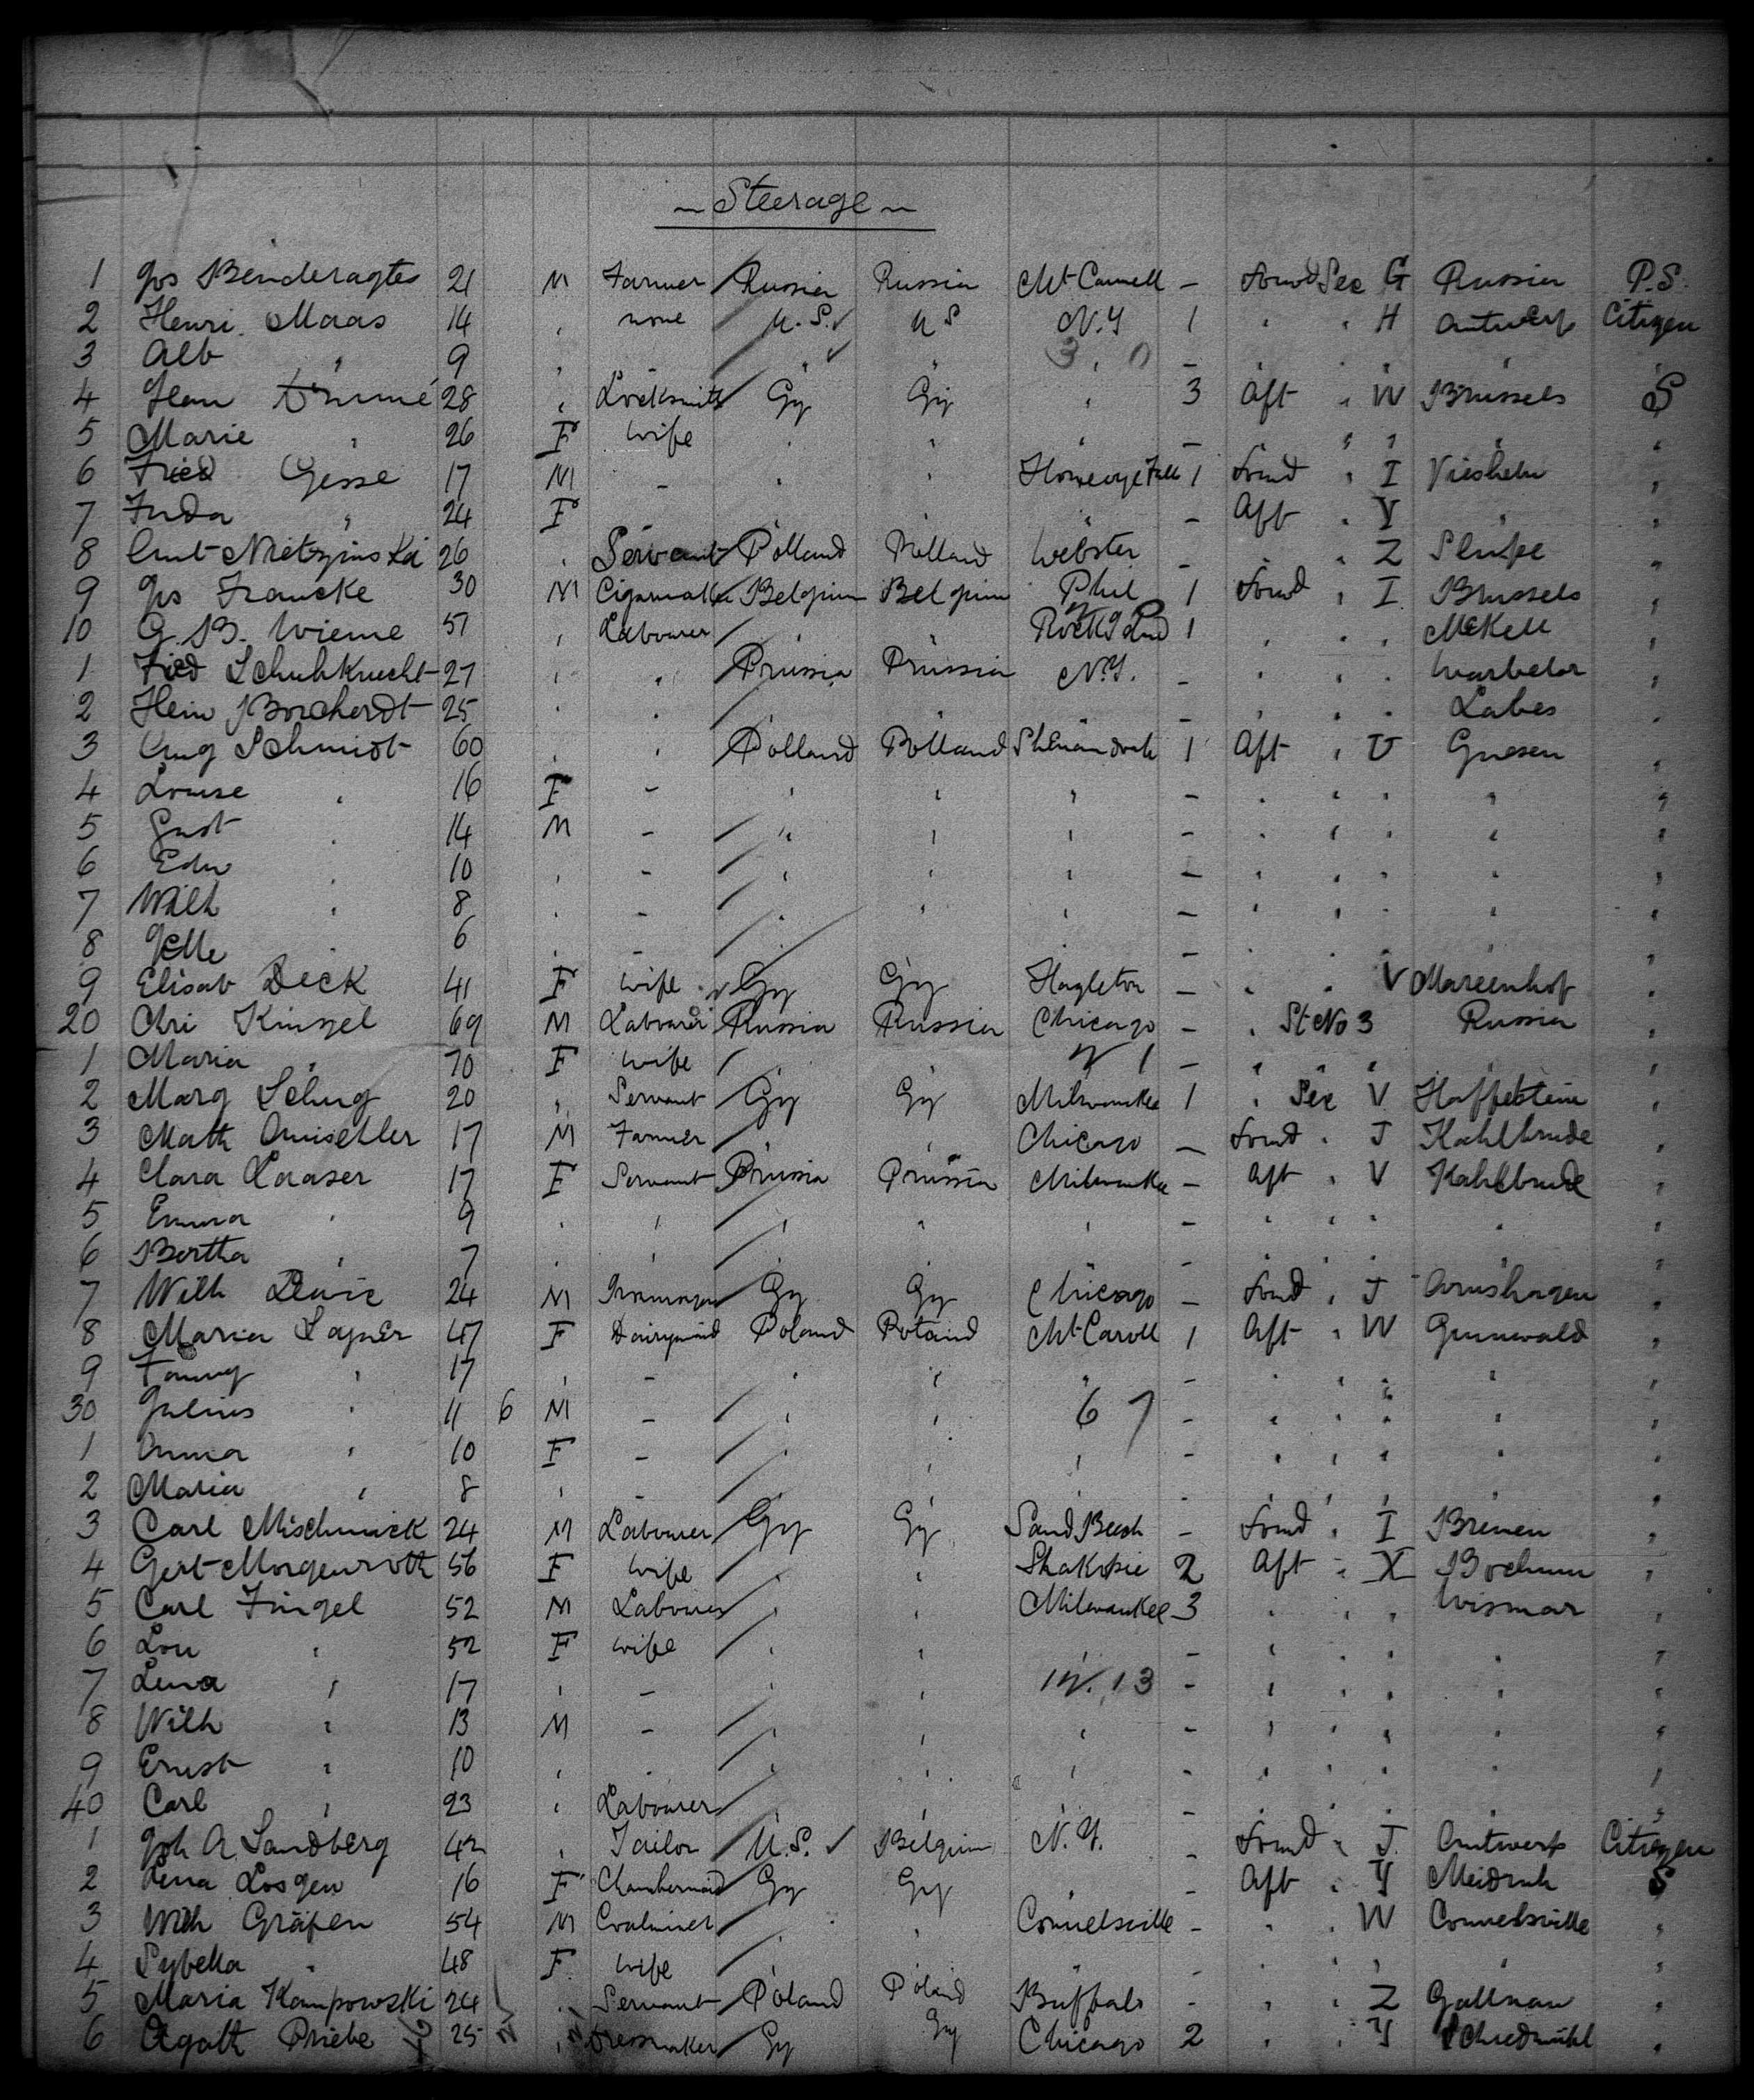 ~ Steerage ~
1 Jos Benderagtes 21 M Farmer Russia Russia Mt Carmell - Forwd Sec G Russia P.S.
2 Henri Maas 14 , none U.S. ✓ U S N.Y 1 " " H Antwerp Citizen
3 Alb " 9 , " ✓ " 3 , 0 - " " " " "
4 Jean 28 , Locksmith Gy Gy " 3 Aft " W Brussels S
5 Marie " 26 F wife " " " - " " " "
6 Fried Gesse 17 M - " " 1 Forwd " I "
7 " 24 F " " " - Aft " Y " "
8 26 " Servant Polland Polland Webster - " " Z "
9 Jos Francke 30 M Cigarmaker Belgium Belgium Phil 1 Forwd " I Brussels "
10 G. B. Wieme 57 , Labourer " " 1 " " " "
1 Fried Schuhknecht 27 " " Prussia Prussia N.Y. - " " " "
2 Hein Borchardt 25 " " " " " - " " " Labes "
3 Aug Schmidt 60 " " Polland Polland Shenandoah 1 Aft " U Gnesen "
4 Louise " 16 F - " " " - " " " " "
5 Gust " 14 M - " " " - " " " " "
6 Edw " 10 , - " " " - " " " " "
7 Wilh " 8 " - " " " - " " " " "
8 " 6 " - " " " - " " " " "
9 Elisab Deck 41 F wife Gy Gy - " " V Mareenhof "
20 Chri Kinzel 69 M Labourer Russia Russia Chicago - " St No 3 Russia "
1 Maria " 70 F wife " " " - " " " " "
2 Marg 20 " Servant Gy Gy Milwaukee 1 " Sec V "
3 Math 17 M Farmer " " Chicago - Forwd " J Kahlbude "
4 Clara Laaser 17 F Servant Prussia Prussia Milwaukee - Aft " V Kahlbude "
5 Emma " 9 " " " " " - " " " " "
6 Bertha " 7 " " " " " - " " " " "
7 Wilh 24 M Gy Gy Chicago - Forwd " J "
8 Maria 47 F Dairymaid Poland Poland Mt Caroll 1 Aft " W Grunwald "
9 Fanny " 17 " - " " " - " " " " "
30 Julius " 11 6 M - " " 6 7 - " " " " "
1 Anna " 10 F - " " " - " " " " "
2 Maria " 8 " - " " " - " " " " "
3 Carl Mischnick 24 M Labourer Gy Gy Sand Beach - Forwd " I Bremen "
4 Gert Morgenroth 56 F wife " " 2 Aft " X Bochum "
5 Carl Fingel 52 M Labourer " " Milwaukee 3 " " " Wismar "
6 Lou " 52 F wife " " " - " " " " "
7 Lena " 17 " - " " - " " " " "
8 Wilh " 13 M - " " " - " " " " "
9 Ernst " 10 " - " " " - " " " " "
40 Carl " 23 " Labourer " " " - " " " " "
1 Joh A. Sandberg 42 " Tailor U.S. ✓ Belgium N.Y. - Forwd " J. Antwerp Citizen
2 Lena Losgen 16 F Chambermaid Gy Gy " - Aft " Y S
3 Wilh Gräfen 54 M Coalminer " " Connelsville - " " W Connelsville "
4 Sybella " 48 F wife " " " - " " " " "
5 Maria Kampowski 24 " Servant Poland Poland Buffalo - " " Z Gallnau "
6 Agath Priebe 25 " Dressmaker Gy Gy Chicago 2 " " Y "